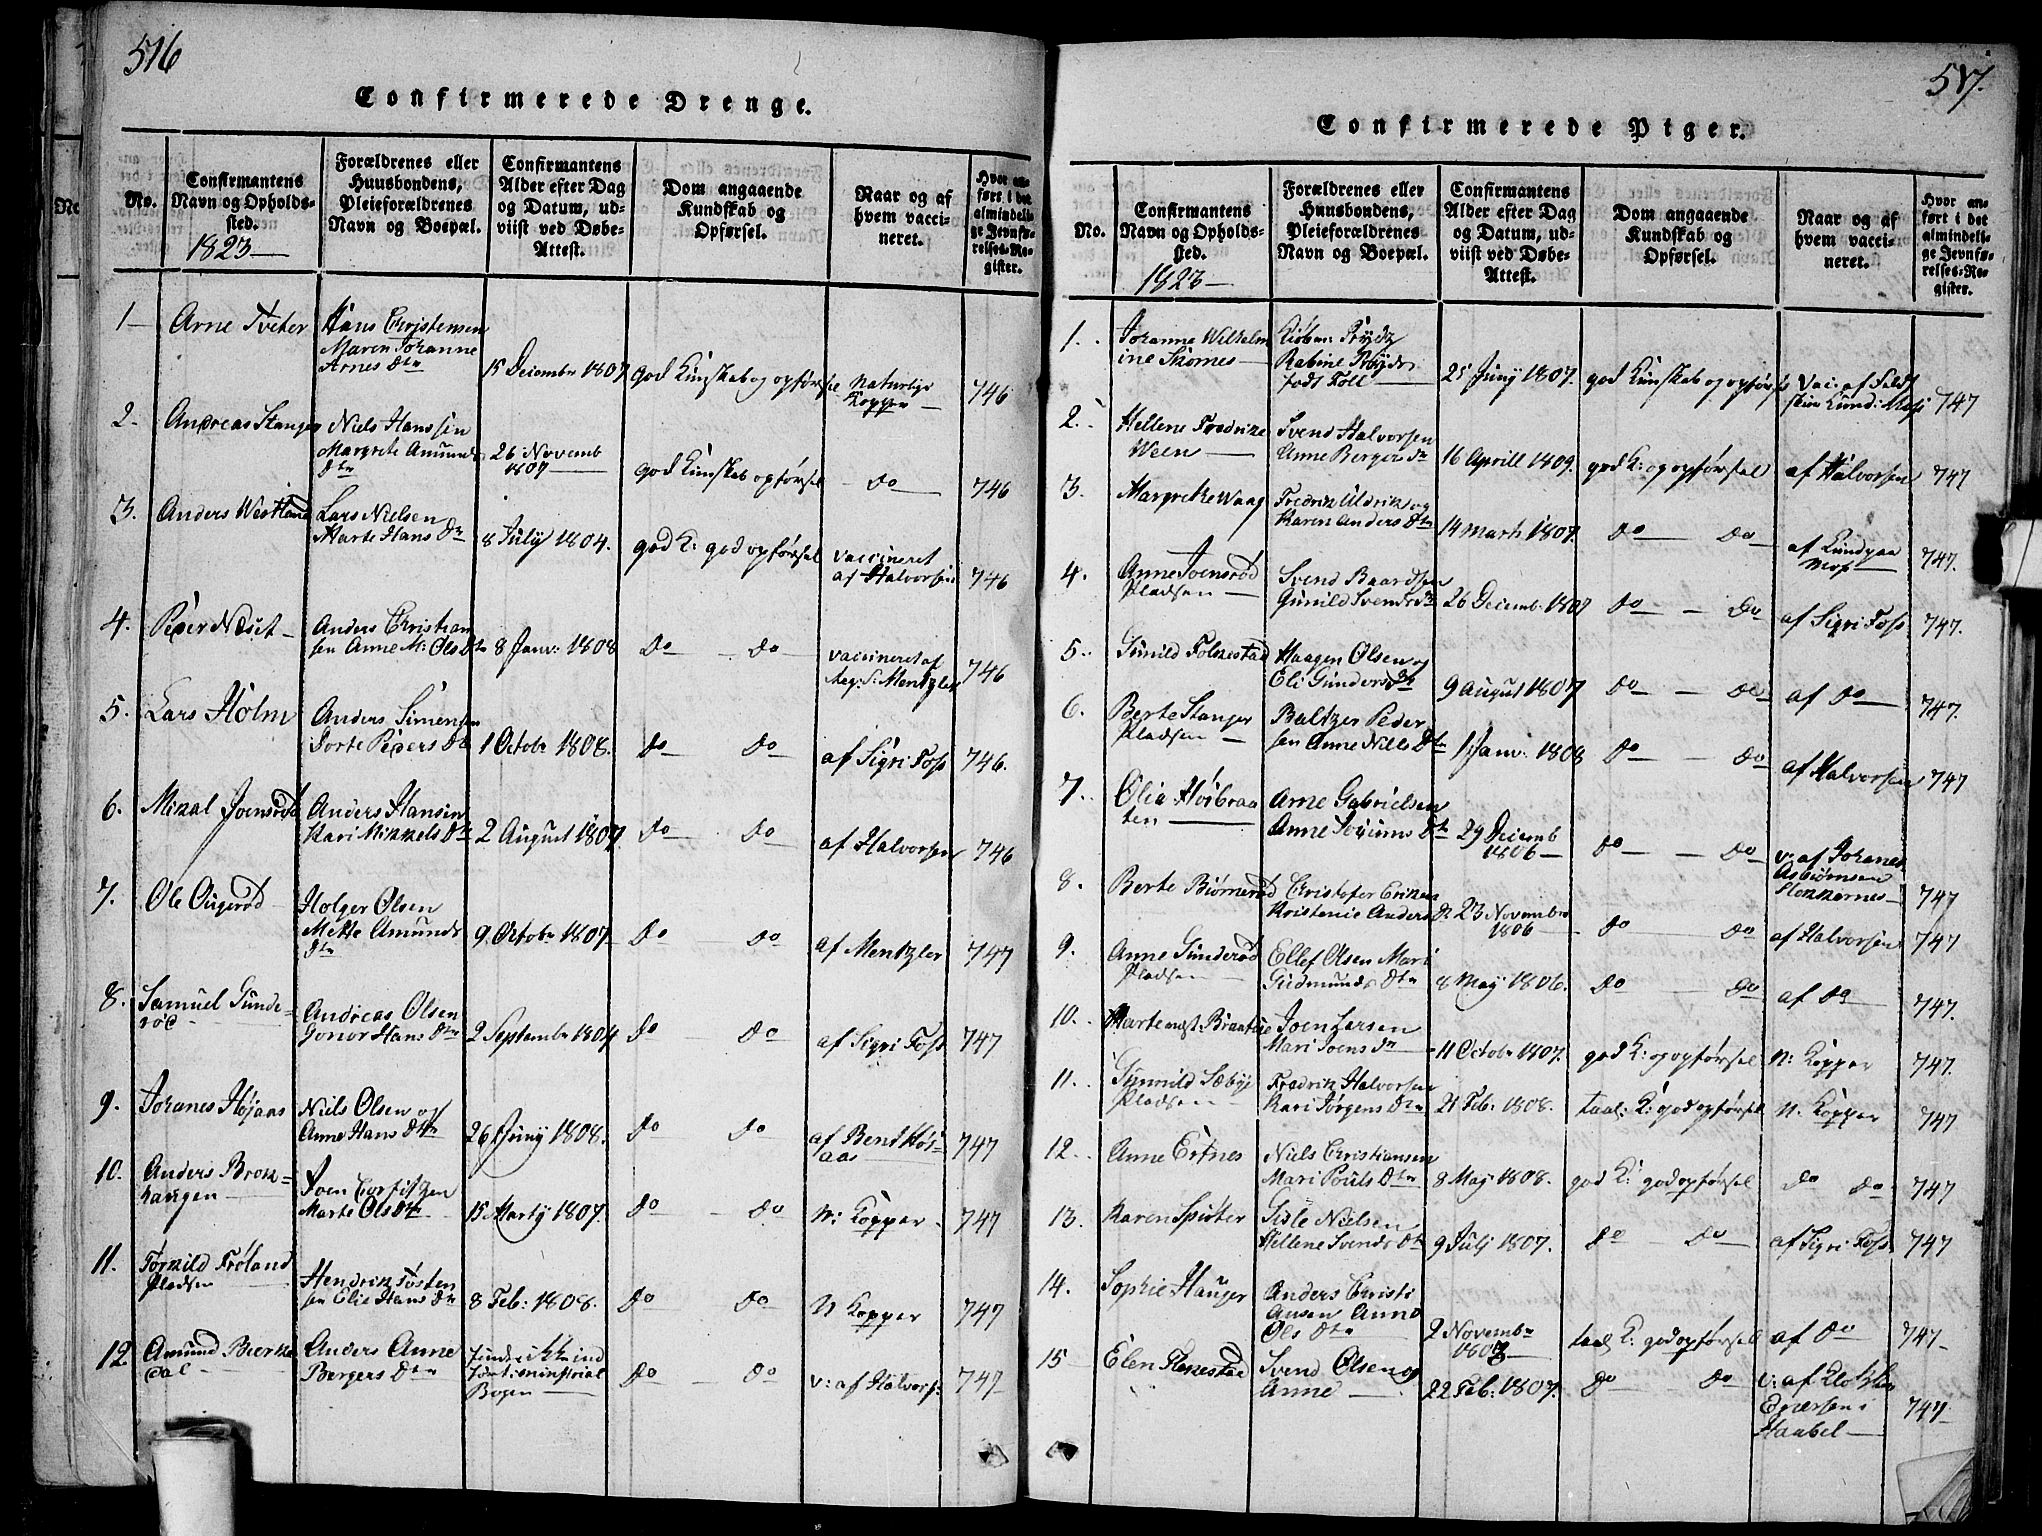 516
Confirmerede Drenge.
No.
Confirmantens Navn og Opholdssted.
1823
Forældrenes eller Huusbondens, Pleieforældrenes Navn og Boepæl.
Confirmantens Alder efter Dag og Datum, udviist ved Døbe-Attest.
Dom angaaende Kundskab og Opførsel.
Naar og af hvem vaccineret.
Hvor anført i det almindelige Jevnførelses-Register.
1 Arne Tveter Hans Christensen
Maren Johanne
Arnes Dtr 15 Decembr 1807 god Kunskab og opførsel Naturlige
Kopper 746
2. Andreas Stanger Niels Hanssen
Margrete Amunds
Dtr 26 Novemb
1807 god Kunskab opførsel do 746
3. Anders Westland Lars Nielsen
Marte Hans Dr 8 July 1804. god K: god opførsel vaccineret
af Halvorsen 746
4. Peder Næset Anders Christian
sen Anne M: Ols Dtr 8 Janv: 1808 do do vaccineret af
Reg: S: Mentzler 746
5. Lars Holm Anders Simensen
Dorte Peders Dr 1 Octobr 1808. do do af Sigri Foss 746.
6. Mikal Joensrød Anders Hansen
Kari Mikkels Dtr 2 August 1807 do do af Halvorsen 746
7. Ole Ougerød Holger Olsen
Mette Amunds
Dtr 9 Octobr 1807 do do af Mentzler 747
8. Samuel Gunde-
rød Andreas Olsen
Gonor Hans Dtr 2 Septembr 1807 do do af Sigri Foss 747
9. Johanes Højaas Niels Olsen og
Anne Hans Dtr 26 Juny 1808. do do af Bent Høi-
aas 747
10. Anders Brek
haugen Joen
Marte Ols Dtr 15 Marty 1807. do do N: Kopper 747
11. Torkild Frøland
Pladsen Hendrik Tosten
sen Elie Hans Dtr 8 Feb: 1808. do do N Kopper 747
12 Amund Bierke
dal Anders Anne
Bergers Dtr findes ikke ind
ført i ministrial
Bogen do do v: af Halvors: 747
517.
Confirmerede Piger.
No.
Confirmantens Navn og Opholdssted.
1823
Forældrenes eller Huusbondens, Pleieforældrenes Navn og Boepæl.
Confirmantens Alder efter Dag og Datum, udviist ved Døbe-Attest.
Dom angaaende Kundskab og Opførsel.
Naar og af hvem vaccineret.
Hvor anført i det almindelige Jevnførelses-Register.
1. Johanne Wilhelm
ine Skornes Kiøbm: Prydz
Prydz
født Foll 25 Juny 1807. god Kunskab og opførsel Vac: af Feldt
747
2. Hellene Fredrike
Ween Svend Halvorsen
Anne Bergers Dr 16 Aprill 1809. god K: og opførsel af Halvorsen 747
3. Margrethe Waag Fredrik Uldrik og
Karen Anders Dtr 14 Marti 1807. do do af
Moss 747.
4. Anne Joensrød
Pladsen Svend Baardsen
Gunild Svends Dr 26 Decemb: 1807 do do af Sigri Foss 747.
5. Gunild Folkestad Haagen Olsen og
Eli Gunders Dr 9 August 1807 do do af do 747.
6. Berte Stanger
Pladsen Baltzer Peder
sen Anne Niels Dtr 1 Janv: 1808 do do af Halvorsen 747
7. Olia Høibraa
ten Arne Gabrielsen
Anne Dtr 29 Decemb
1806 do do v: af Johanes
Asbiørnsen
Stokkernes 747
8. Berte Biørnerød Christofer Eriksen
Kristenie Anders Dr 23 Novembr
1806 do do af Halvorsen 747
9. Anne Gunderød
Pladsen Ellef Olsen Mari
Gudmunds Dtr 8 May 1806. do do af do 747.
10. Marte Braaten Joen Larsen
Mari Joens Dr 11 Octobr 1807. god K: og opførsel N: Kopper 747.
11. Gunnild Sæbye
Pladsen Fredrik Halvorsen
Kari Jørgens Dtr 21 Feb: 1808. taal: K: god opførsel N: Kopper 747
12. Anne Ertnes Niels Christiansen
Mari Pouls Dtr 8 May 1808. god K: god opførsel do do 747
13. Karen Spioter Gisle Nielsen
Hellene Svends Dtr 9 July 1807. do do af Sigri Foss 747
14. Sophie Hauger Anders Christi
ansen Anne
Ols Dtr 2 Novembr
1807 taal K: god opførsel af do 747
15 Elen Flekestad Svend Olsen og
Anne 22 Feb: 1807. do do v: af
Haabel 747